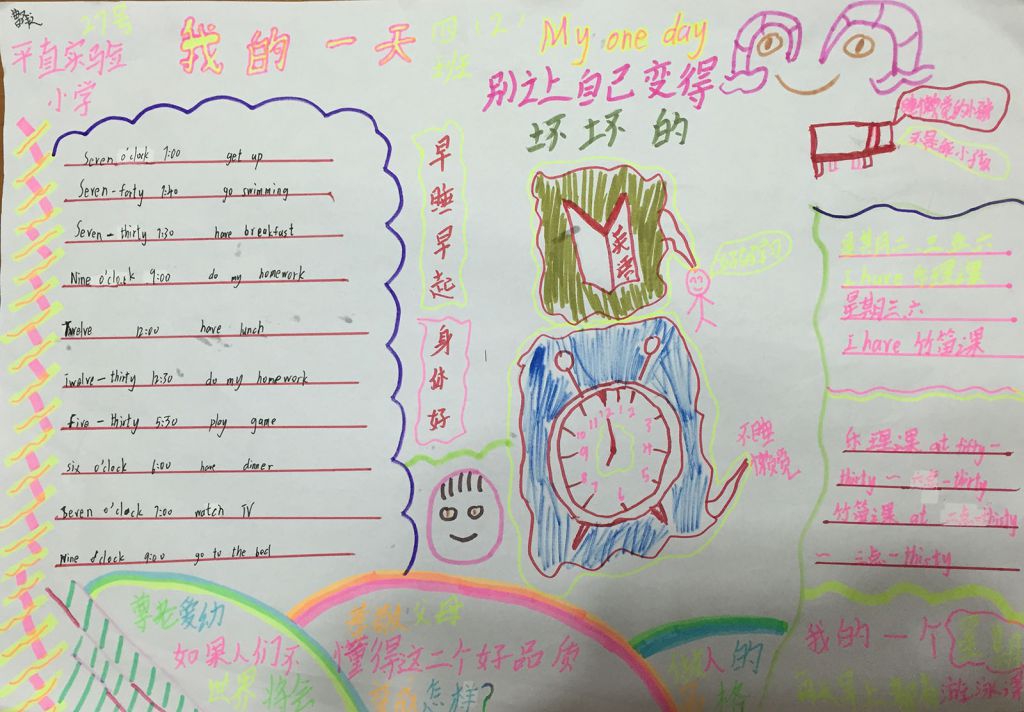 27号
我的一天
四(2)
班
My one day
平直实验
小学
别让自己变得
坏坏的
睡懒觉的小孩
不是好小孩
早睡早起
身体好
英语
12 1 2 3 4 5 6 7 8 9 10 11
不睡
懒觉
Seven o'clock 7:00 get up
Seven-forty 7:40 go swimming
Seven-thirty 7:30 have breakfast
Nine o'clock 9:00 do my homework
Twelve 12:00 have lunch
Twelve-thirty 12:30 do my homework
Five-thirty 5:30 play game
six o'clock 6:00 have dinner
Seven o'clock 7:00 watch TV
Nine o'clock 9:00 go to the bed
星期二 三 六
I have 乐理课
星期三.六
I have 竹笛课
乐理课 at fifty-
thirty-六点-thirty
竹笛课 at 二点-thirty
-三点-thirty
尊老爱幼
如果人们不
世界将会
孝敬父母
懂得这二个好品质
怎样?
人的
格
我的一个
游泳课